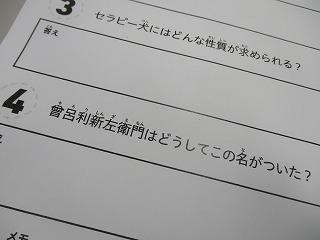 3
セラピー犬にはどんな性質が求められる？
答え
4
曾呂利新左衛門はどうしてこの名がついた？
メモ